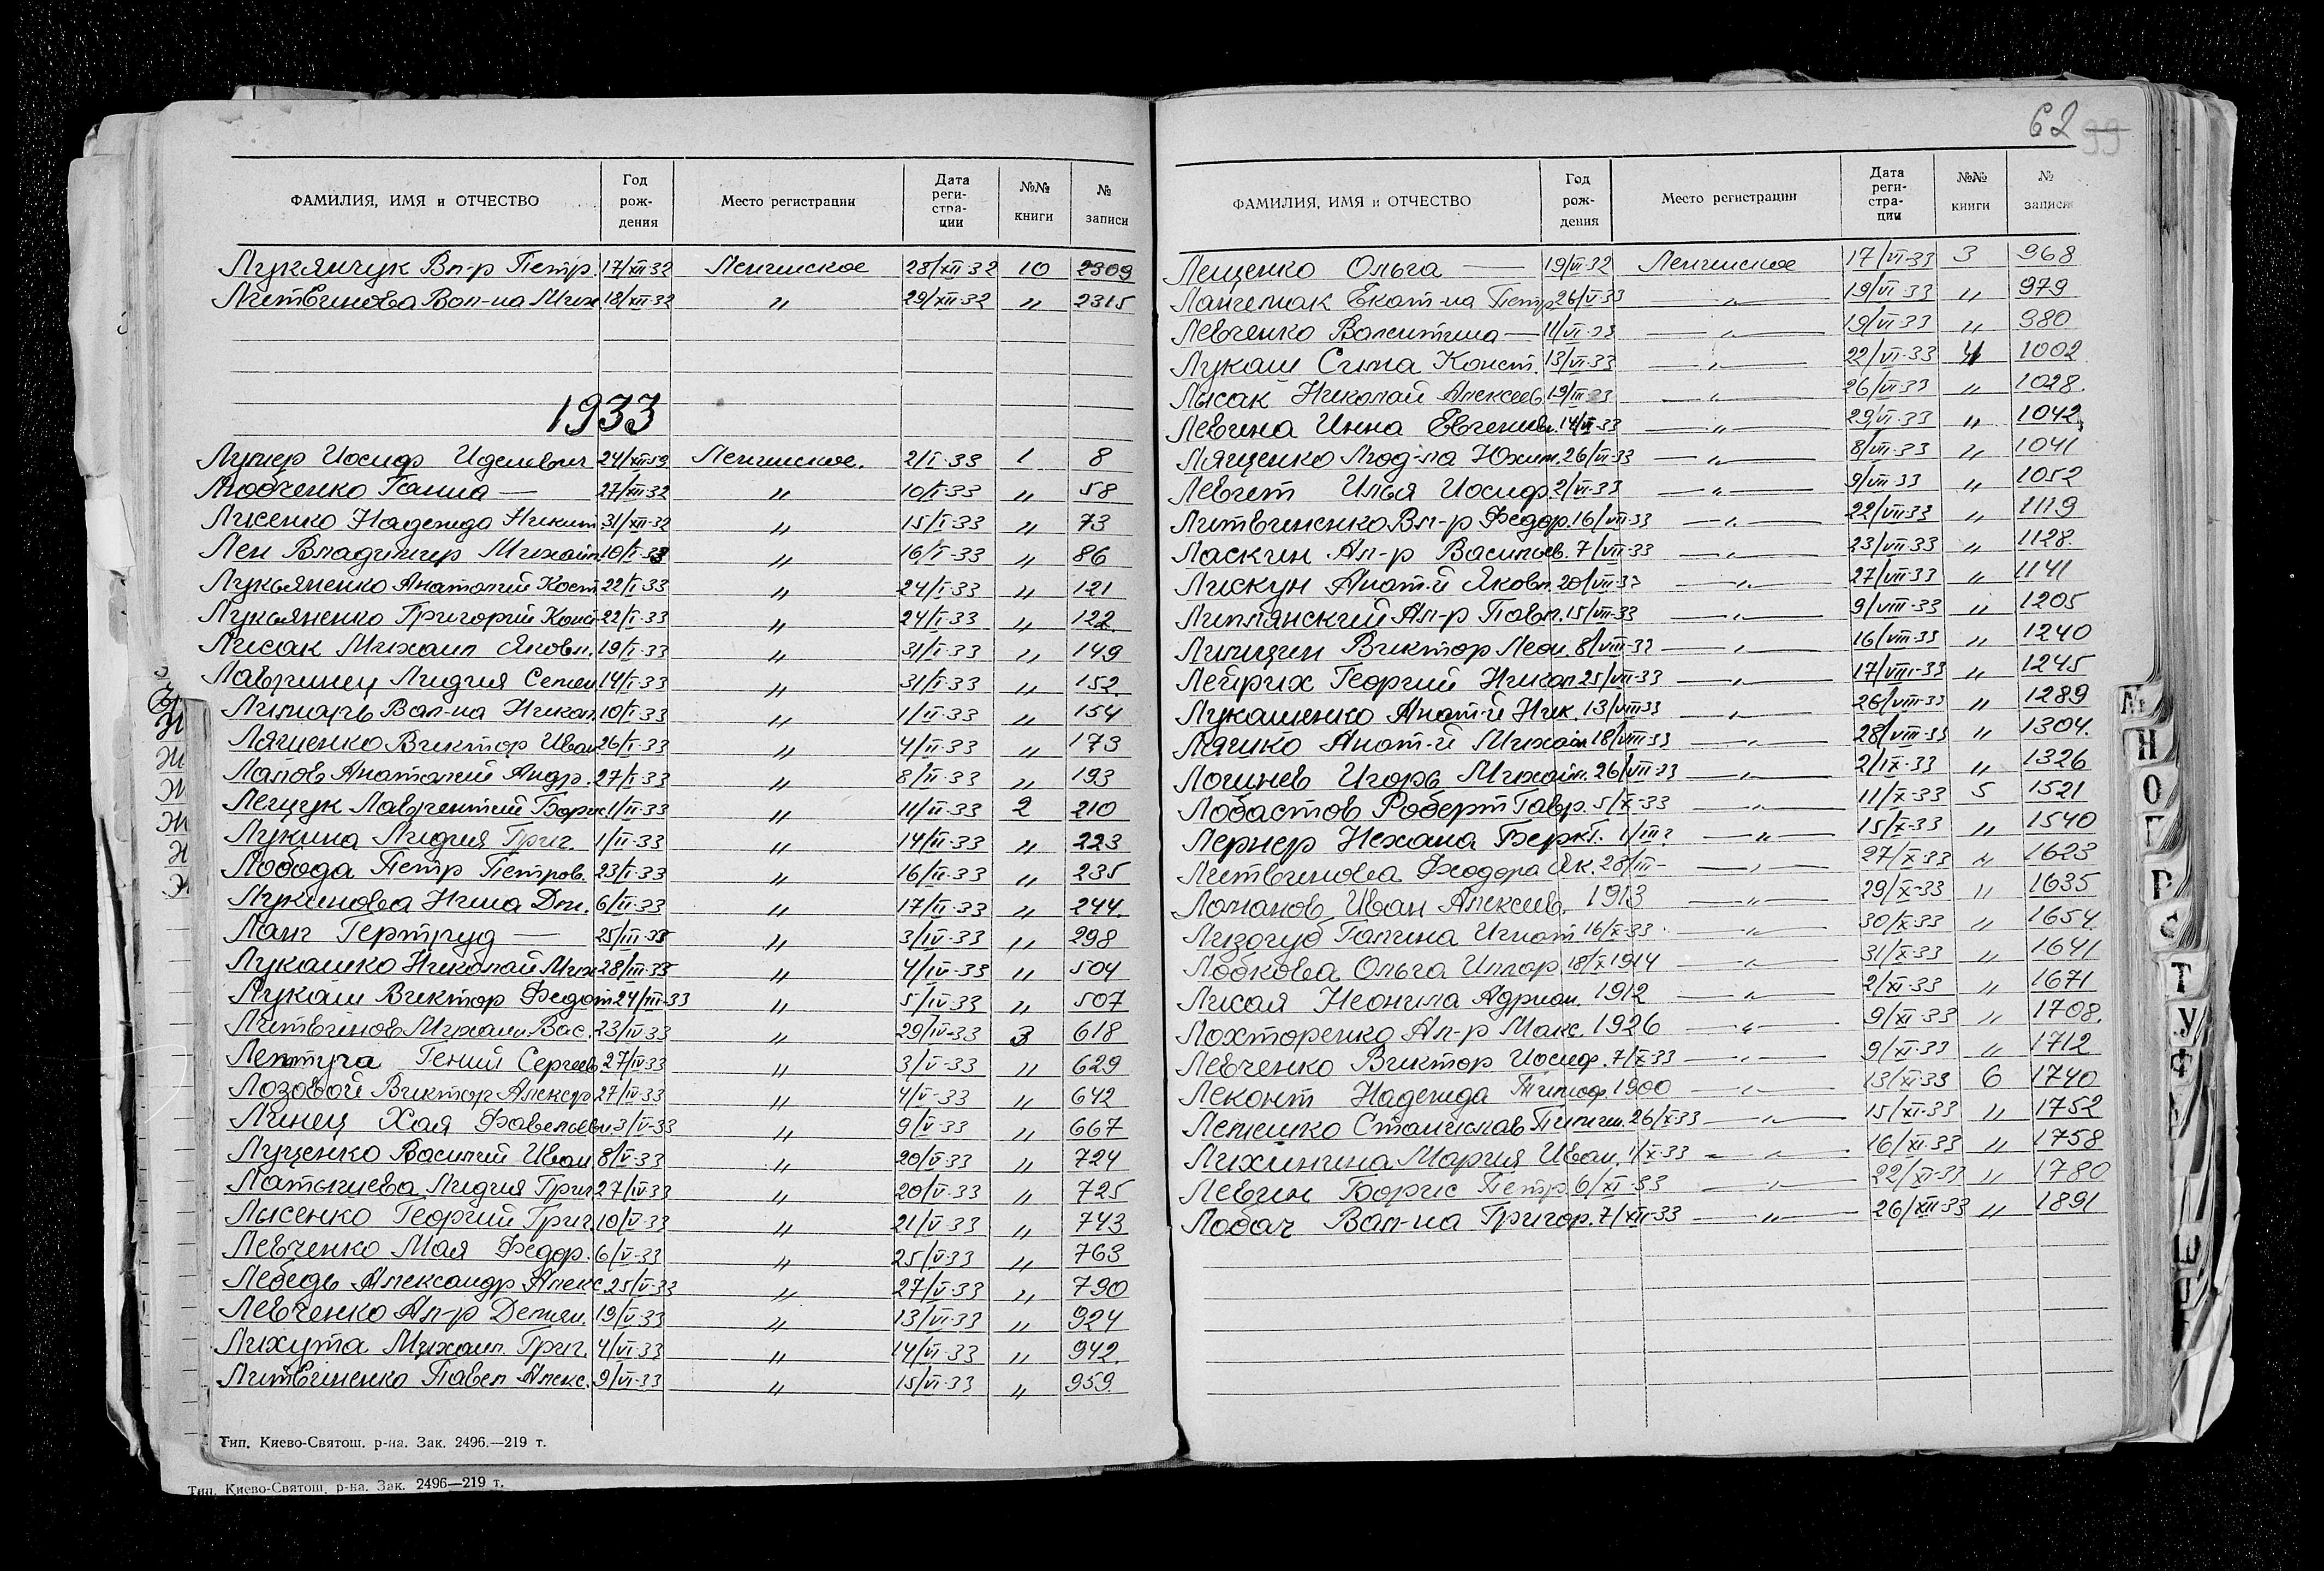 62 99
ФАМИЛИЯ, ИМЯ и ОТЧЕСТВО Год рож- дения Место регистрации Дата реги- стра- ции №№ книги № записи
Лукянчук Вл-р Петр. 17/XII 32 Ленинское 28/XII-32 10 2309
Литвинова Вал-на Мих 18/XII-32 " 29/XII-32 " 2315
1933
Лупер Иосиф Иделевич 24/XII Ленинское. 2/I-33 1 8
Любченко Ганна — 27/XII-32 " 10/I-33 " 58
Лисенко Надежда Никит. 31/XII-32 " 15/I-33 " 73
Лен Владимир Михайл. 10/I-33 " 16/I-33 " 86
Лукьяненко Анатолий Кост 22/I-33 " 24/I-33 " 121
Лукьяненко Григорий Конс 22/I-33 " 24/I-33 " 122
Лисак Михаил Яковл. 19/I-33 " 31/I-33 " 149
Лавринец Лидия Семен 14/I-33 " 31/I-33 " 152
Лимарь Вал-на Никол. 10/I-33 " 1/II-33 " 154
Лященко Виктор Иван 26/I-33 " 4/II-33 " 173
Лапов Анатолий Андр. 27/I-33 " 8/II-33 " 193
Лещук Лаврентий Борис 1/II-33 " 11/II-33 2 210
Лукина Лидия Григ. 1/II-33 " 14/II-33 " 223
Лобода Петр Петров. 23/I-33 " 16/II-33 " 235
Лукинова Нина Дм. 6/II-33 " 17/II-33 " 244
Ланг Гертруд — 25/III-33 " 3/IV-33 " 298
Лукашко Николай Мих 28/III-33 " 4/IV-33 " 504
Лукаш Виктор Федот 24/III-33 " 5/IV-33 " 507
Литвинов Михаил Вас. 23/IV-33 " 29/IV-33 3 618
Лептуга Гений Сергеев 27/IV-33 " 3/V-33 " 629
Лозовой Виктор Алексдр 27/IV-33 " 4/V-33 " 642
Линец Хая Фавельевн. 3/V-33 " 9/V-33 " 667
Луценко Василий Иван 8/V-33 " 20/V-33 " 724
Латышева Лидия Григ 27/IV-33 " 20/V-33 " 725
Лысенко Георгий Григ. 10/V-33 " 21/V-33 " 743
Левченко Мая Федор. 6/V-33 " 25/V-33 " 763
Лебедь Александр Алекс. 25/V-33 " 27/V-33 " 790
Левченко Ал-р Демян. 19/V-33 " 13/VI-33 " 924
Лихута Михаил Григ. 4/VI-33 " 14/VI-33 " 942.
Литвиненко Павел Алекс. 9/VI-33 " 15/VI-33 " 959
Тип. Киево-Святош. р-на. Зак. 2496.—219 т.
Тип. Киево-Святош. р-на. Зак. 2496—219 т.
ФАМИЛИЯ, ИМЯ и ОТЧЕСТВО Год рож- дения Место регистрации Дата реги- стра- ции №№ книги № записи
Лещенко Ольга — 19/VI-32 Ленинское 17/VI-33 3 968
Екат-на Петр 26/V-33 — " — 19/VI-33 " 979
Левченко Валентина — 11/VI-33 — " — 19/VI-33 " 980
Лукаш Сима Конст. 13/VI-33 — " — 22/VI-33 4 1002
Лысак Николай Алексеев. 19/III-33 — " — 26/VI-33 " 1028.
Левина Инна Евгенивн. 14/VI-33 — " — 29/VI-33 " 1042
Лященко Люд-ла Юхим. 26/VI-33 — " — 8/VII-33 " 1041
Левит Илья Иосиф 2/VI-33 — " — 9/VII-33 " 1052
Литвиненко Вл-р Федор. 16/VII-33 — " — 22/VII-33 " 1119
Ласкин Ал-р Васильев. 7/VII-33 — " — 23/VII-33 " 1128.
Лискун Анат-й Яковл. 20/VII-33 — " — 27/VII-33 " 1141
Липлянский Ал-р Павл. 15/VII-33 — " — 9/VIII-33 " 1205
Виктор Леон. 8/VIII-33 — " — 16/VIII-33 " 1240
Лейрих Георгий Никол 25/VII-33 — " — 17/VIII-33 " 1245
Лукашенко Анат-й Ник. 13/VIII-33 — " — 26/VIII-33 " 1289
Ляшко Анат-й Михайл 18/VIII-33 — " — 28/VIII-33 " 1304.
Логинев Игорь Михайл. 26/VII-33 — " — 2/IX-33 " 1326
Лобастов Роберт Гавр. 5/X-33 — " — 11/X-33 5 1521
Лернер Нехама Берк Г. 1/III? — " — 15/X-33 " 1540
Литвинова Феодора Як. 28/III- — " — 27/X-33 " 1623
Ломанов Иван Алексеев. 1913 — " — 29/X-33 " 1635
Лизогуб Галина Игнат 16/X-33 — " — 30/X-33 " 1654.
Лобкова Ольга Иллар. 18/X 1914 — " — 31/X-33 " 1641
Лисая Неонила Адриан. 1912 — " — 2/XI-33 " 1671
Лохторенко Ал-р Макс. 1926 — " — 9/XI-33 " 1708.
Левченко Виктор Иосиф. 7/X-33 — " — 9/XI-33 " 1712
Леконт Надежда Тимоф. 1900 — " — 13/XI-33 6 1740
Лемешко Станислав Пилип. 26/X-33 — " — 15/XI-33 " 1752
Лихинина Мария Иван. 1/X-33 — " — 16/XI-33 " 1758
Левин Борис Петр 6/XI-33 — " — 22/XI-33 " 1780
Лобач Вал-на Григор. 7/XII-33 — " — 26/XII-33 " 1891
М
Н
О
П
Р
С
Т
У
Ф
Ш